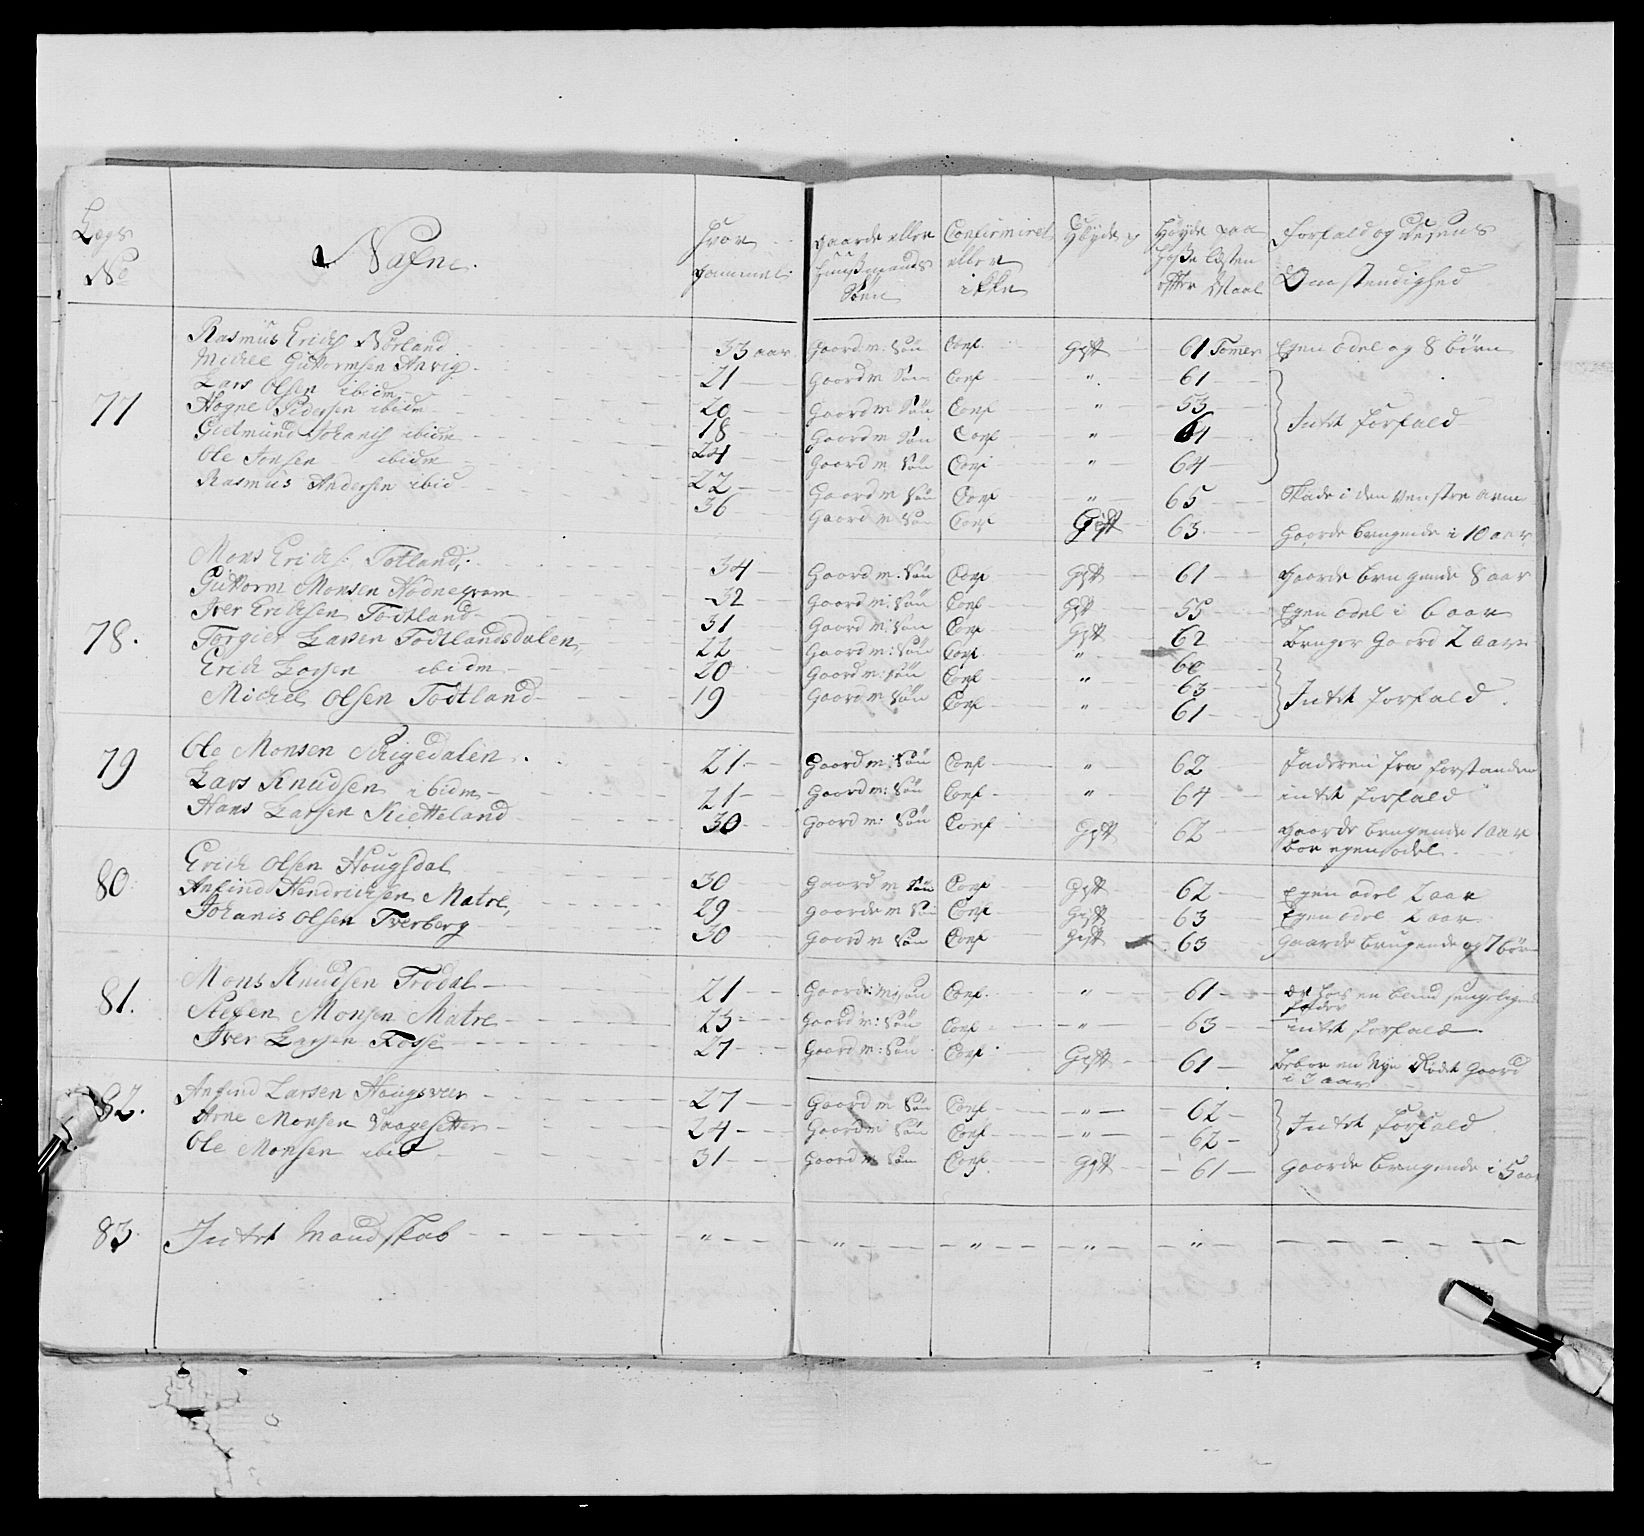 Lægs No | Nafne. | Hvor gammel | Gaarde eller Huusmands Søn | Confirmiret eller ikke | | Høyde paa Maal | Forfald og Omstendighed
77
Rasmus Erichs Nørland - 33 aar | Gaord m. Søn | Conf. | Gift | 61 Tomer | Egen odel og 8 børn
Michel Guttormsen Anvig - 21 | Gaord m Søn | Conf | " | 61
Lars Olsen ibidm - 20 | Gaord m Søn | Conf | " | 53
Hogne Pedersen ibidm - 18 | Gaord m Søn | Conf | " | 64 | Intet forfald
Gudmund Johanis ibidm - 24 | Gaord m Søn | Conf | " | 64
Ole Jonsen ibidm - 22 | Gaord m Søn | Conf | " | 65 | Skade i den venstre arm
Rasmus Andersen ibid - 36 | Gaord m Søn | Conf | Gift | 63 | Gaorde brugende i 10 aar
78.
Mons Erichs: Totland, - 34 | Gaord m: Søn | Conf | Gift | 61 | Gaorde brugende 8 aar
Guttorm Monsen - 32 | Gaord m: Søn | Conf | Gift | 55 | Egen odel i 6 aar
Iver Erichsen Todtland - 31 | Gaord m: Søn | Conf | Gift | 62 | Bruger Gaord 2 aar
Torgier Larsen Todtlandsdalen, - 22 | Gaord m: Søn | Conf | " | 60
Erich Larsen ibidm - 20 | Gaord m: Søn | Conf | " | 63 | Intet forfald.
Michel Olsen Todtland - 19 | Gaord m Søn | Conf | " | 61
79
Ole Monsen - 21 | Gaord m: Søn | Conf | " | 62 | Faderen fra forstanden
Lars Knudsen ibidm - 21 | Gaord m: Søn | Conf | " | 64 | intet forfald
Hans Larsen Kietteland - 30 | Gaord m: Søn | Conf | Gift | 62 | Gaorde brugende 1 aar
bor egen odel
80
Erich Olsen Hougsdal - 30 | Gaord m Søn | Conf | Gift | 62 | Egen odel 2 aar
Anfind Hendrichsen Matre, - 29 | Gaorde m Søn | Conf | Gift | 63 | Egen odel 2 aar
Johanis Olsen Tverberg - 30 | Gaord m Søn | Conf | Gift | 63 | Gaarde brugende og 7 børn
81.
Mons Knudsen Trodal - 21 | Gaorde: m: søn | Conf. | " | 61 | er hos en blind sengeligende
fader
Stefen Monsen Matre - 23 | Gaord m: Søn | Conf | " | 63 | intet forfald
Iver Larsen - 27 | Gaord m: Søn | Conf | Gift | 61 | beboe en Nye Rødt Gaord
i 3 aar
82.
Anfind Larsen - 27 | Gaord m Søn | Conf | " | 62
Arne Monsen Vaagesetter - 24 | Gaord m Søn | Conf | " | 62 | Intet forfald
Ole Monsen ibid - 31 | Gaord m Søn | Conf | Gift | 61 | Gaorde brugende i 5 aar
83 Intet Mandskab - " | " | " | " | "